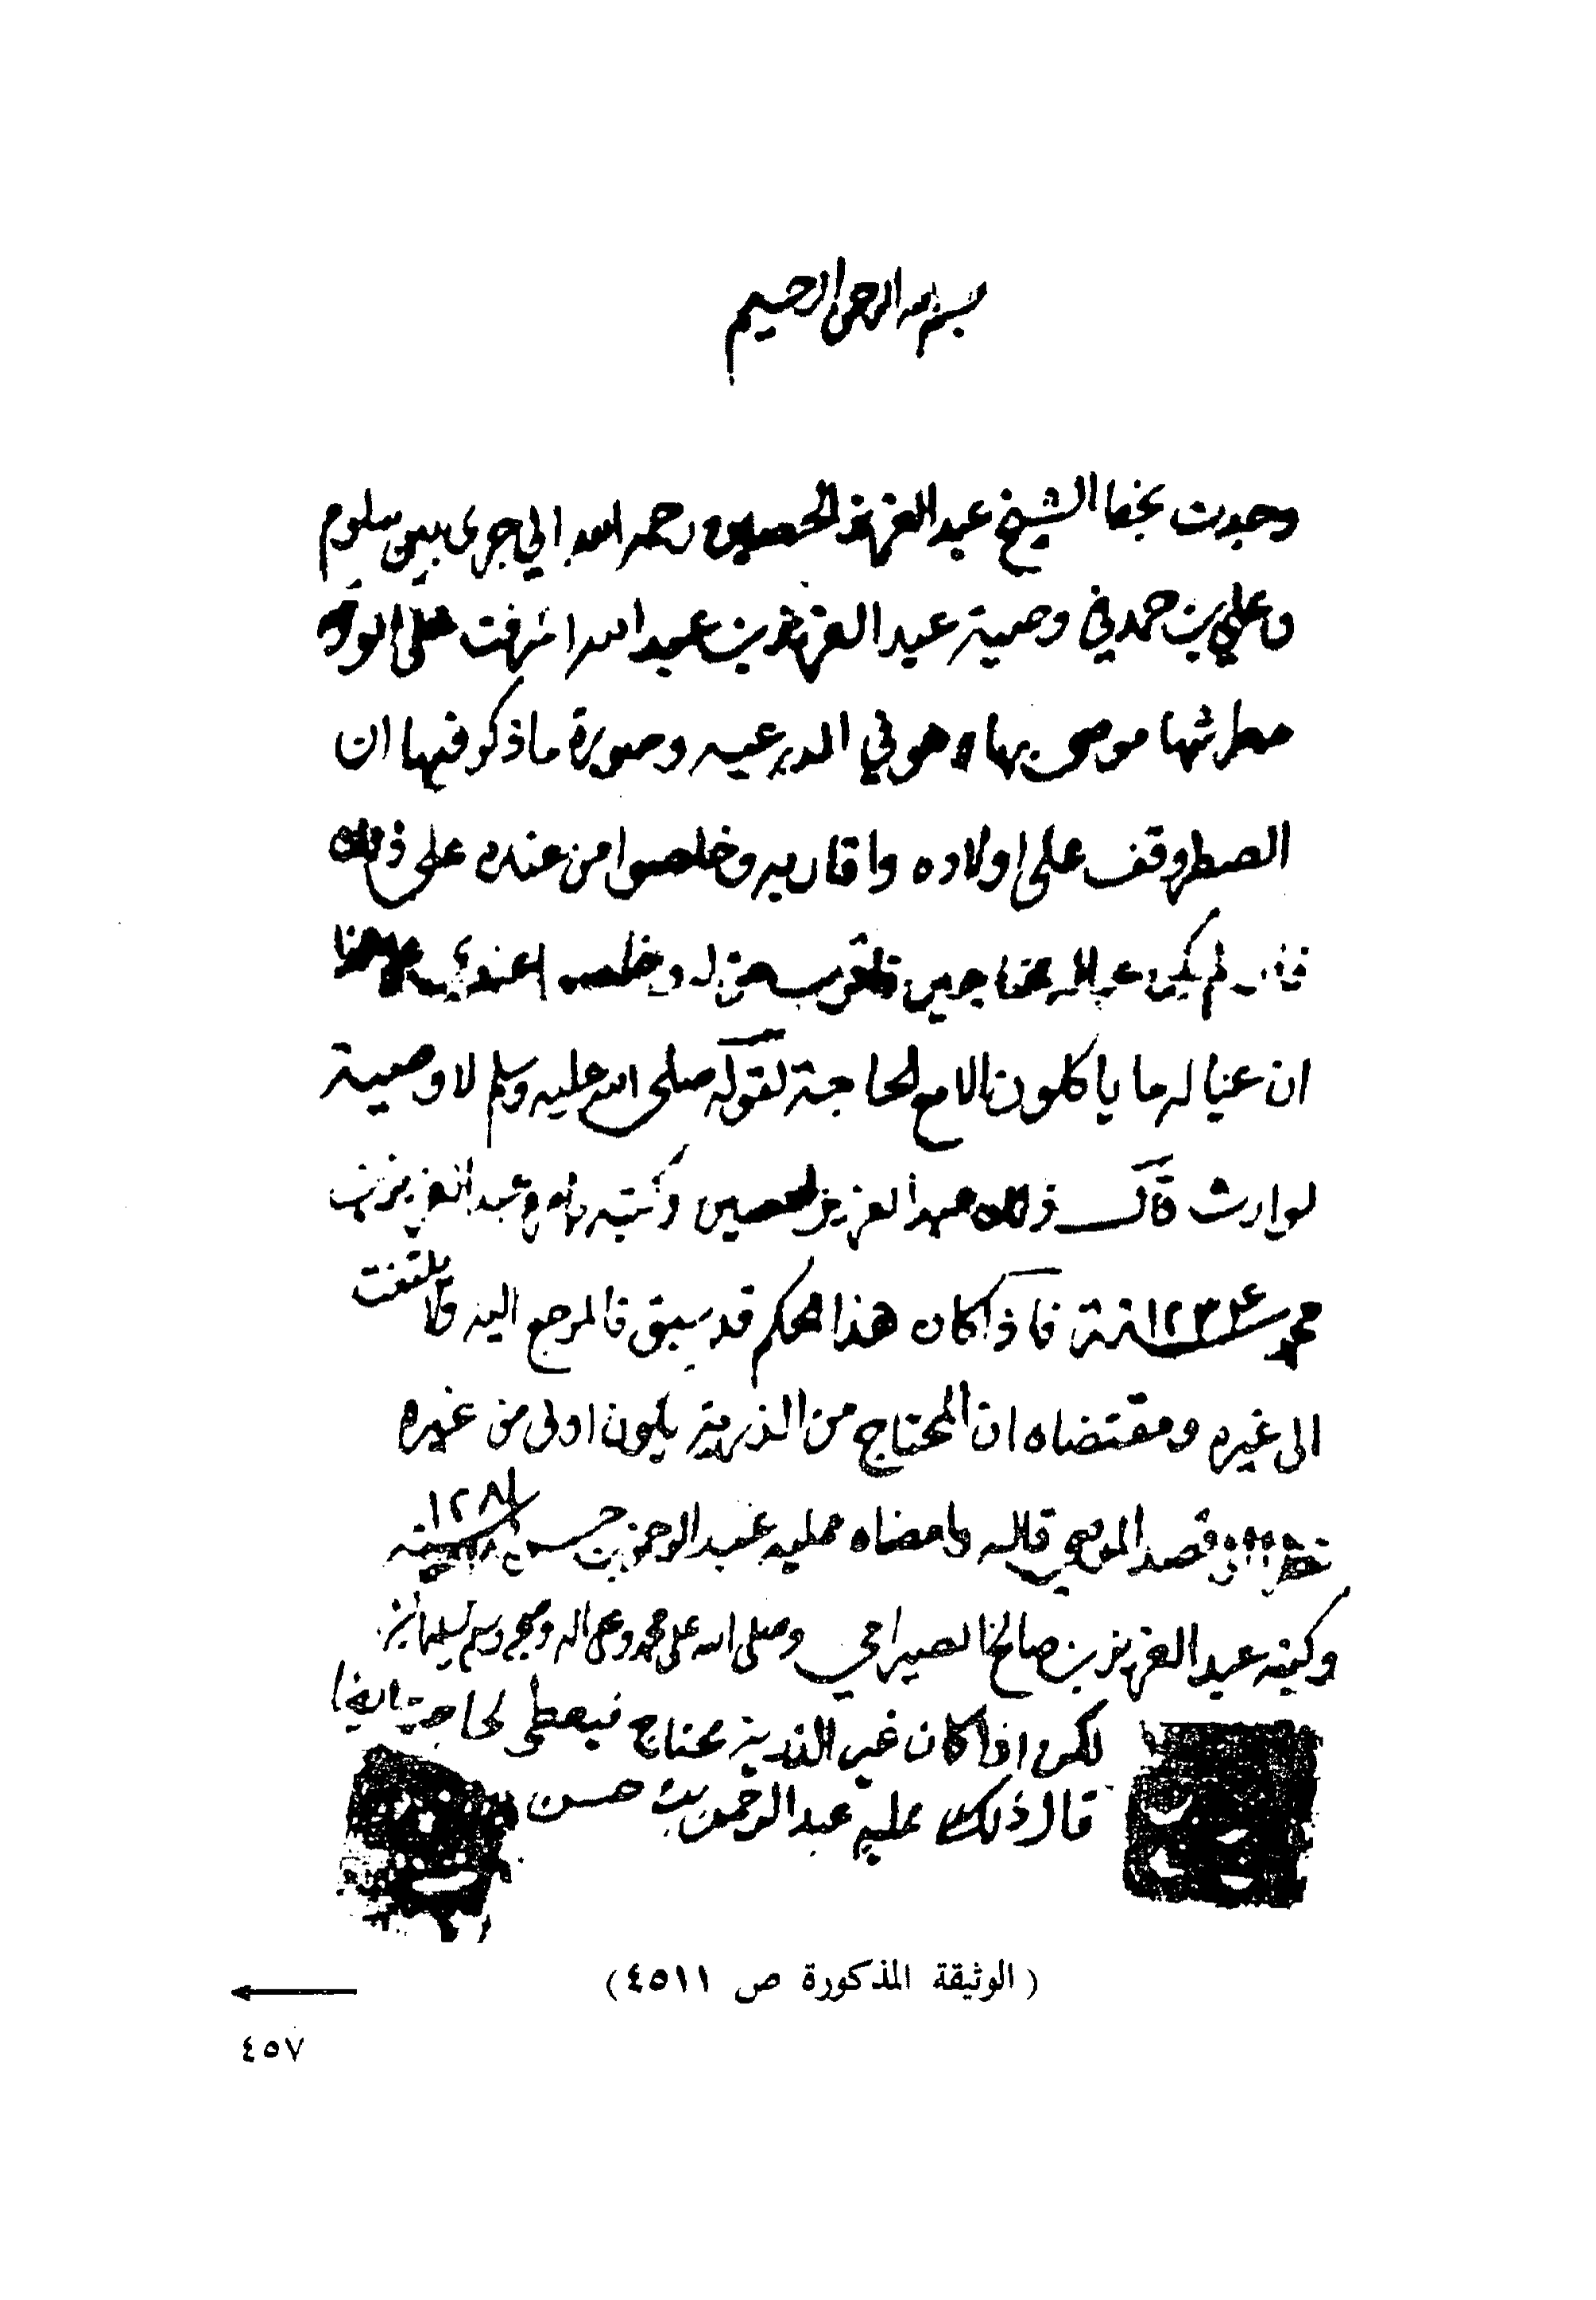 بسم الله الرحمن الرحيم
وجدت بخط الشيخ عبد العزيز الحصين رحمه الله الي جرى بين سلوم
وعلي بن حمد في وصية عبد العزيز بن عبد الله اشرفت على
موصى بها وهو في الدرعيه وصورة ما ذكر فيها ان
وقف على اولاده واقاربه وخلصوا من عنده على ذلك
لم يكن عياله محتاجين
ان عياله ما ياكلون الا مع الحاجة لقوله صلى الله عليه وسلم لا وصية
لوارث قال ذلك عبد العزيز الحصين وكتبه عبد العزيز بن
محمد ١٢٣٤ سنة فاذا كان هذا الحكم قد سبق فالمرجع اليه فلا يلتفت
الى غيره ومقتضاه ان المحتاج من الذرية يكون اولى من غيره
قصد الموصي قاله وامضاه ممليه عبد الرحمن بن حسن سنة
وكتبه عبد العزيز بن صالح الصيرامي وصلى الله على محمد وعلى اله وصحبه وسلم تسليما
لكن اذا كان غير الذرية محتاج فيعطى لحاجته ايضا
قال ذلك ممليه عبد الرحمن بن حسن
(الوثيقة المذكورة ص ٤٥١١)
٤٥٧